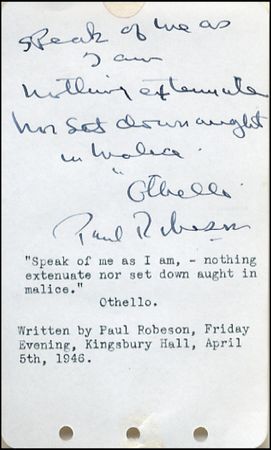 Speak of me as
I am
nothing extenuate
Nor set down aught
in malice.
"Othello"
Paul Robeson
"Speak of me as I am, - nothing
extenuate nor set down aught in
malice."
Othello.
Written by Paul Robeson, Friday
Evening, Kingsbury Hall, April
5th, 1946.